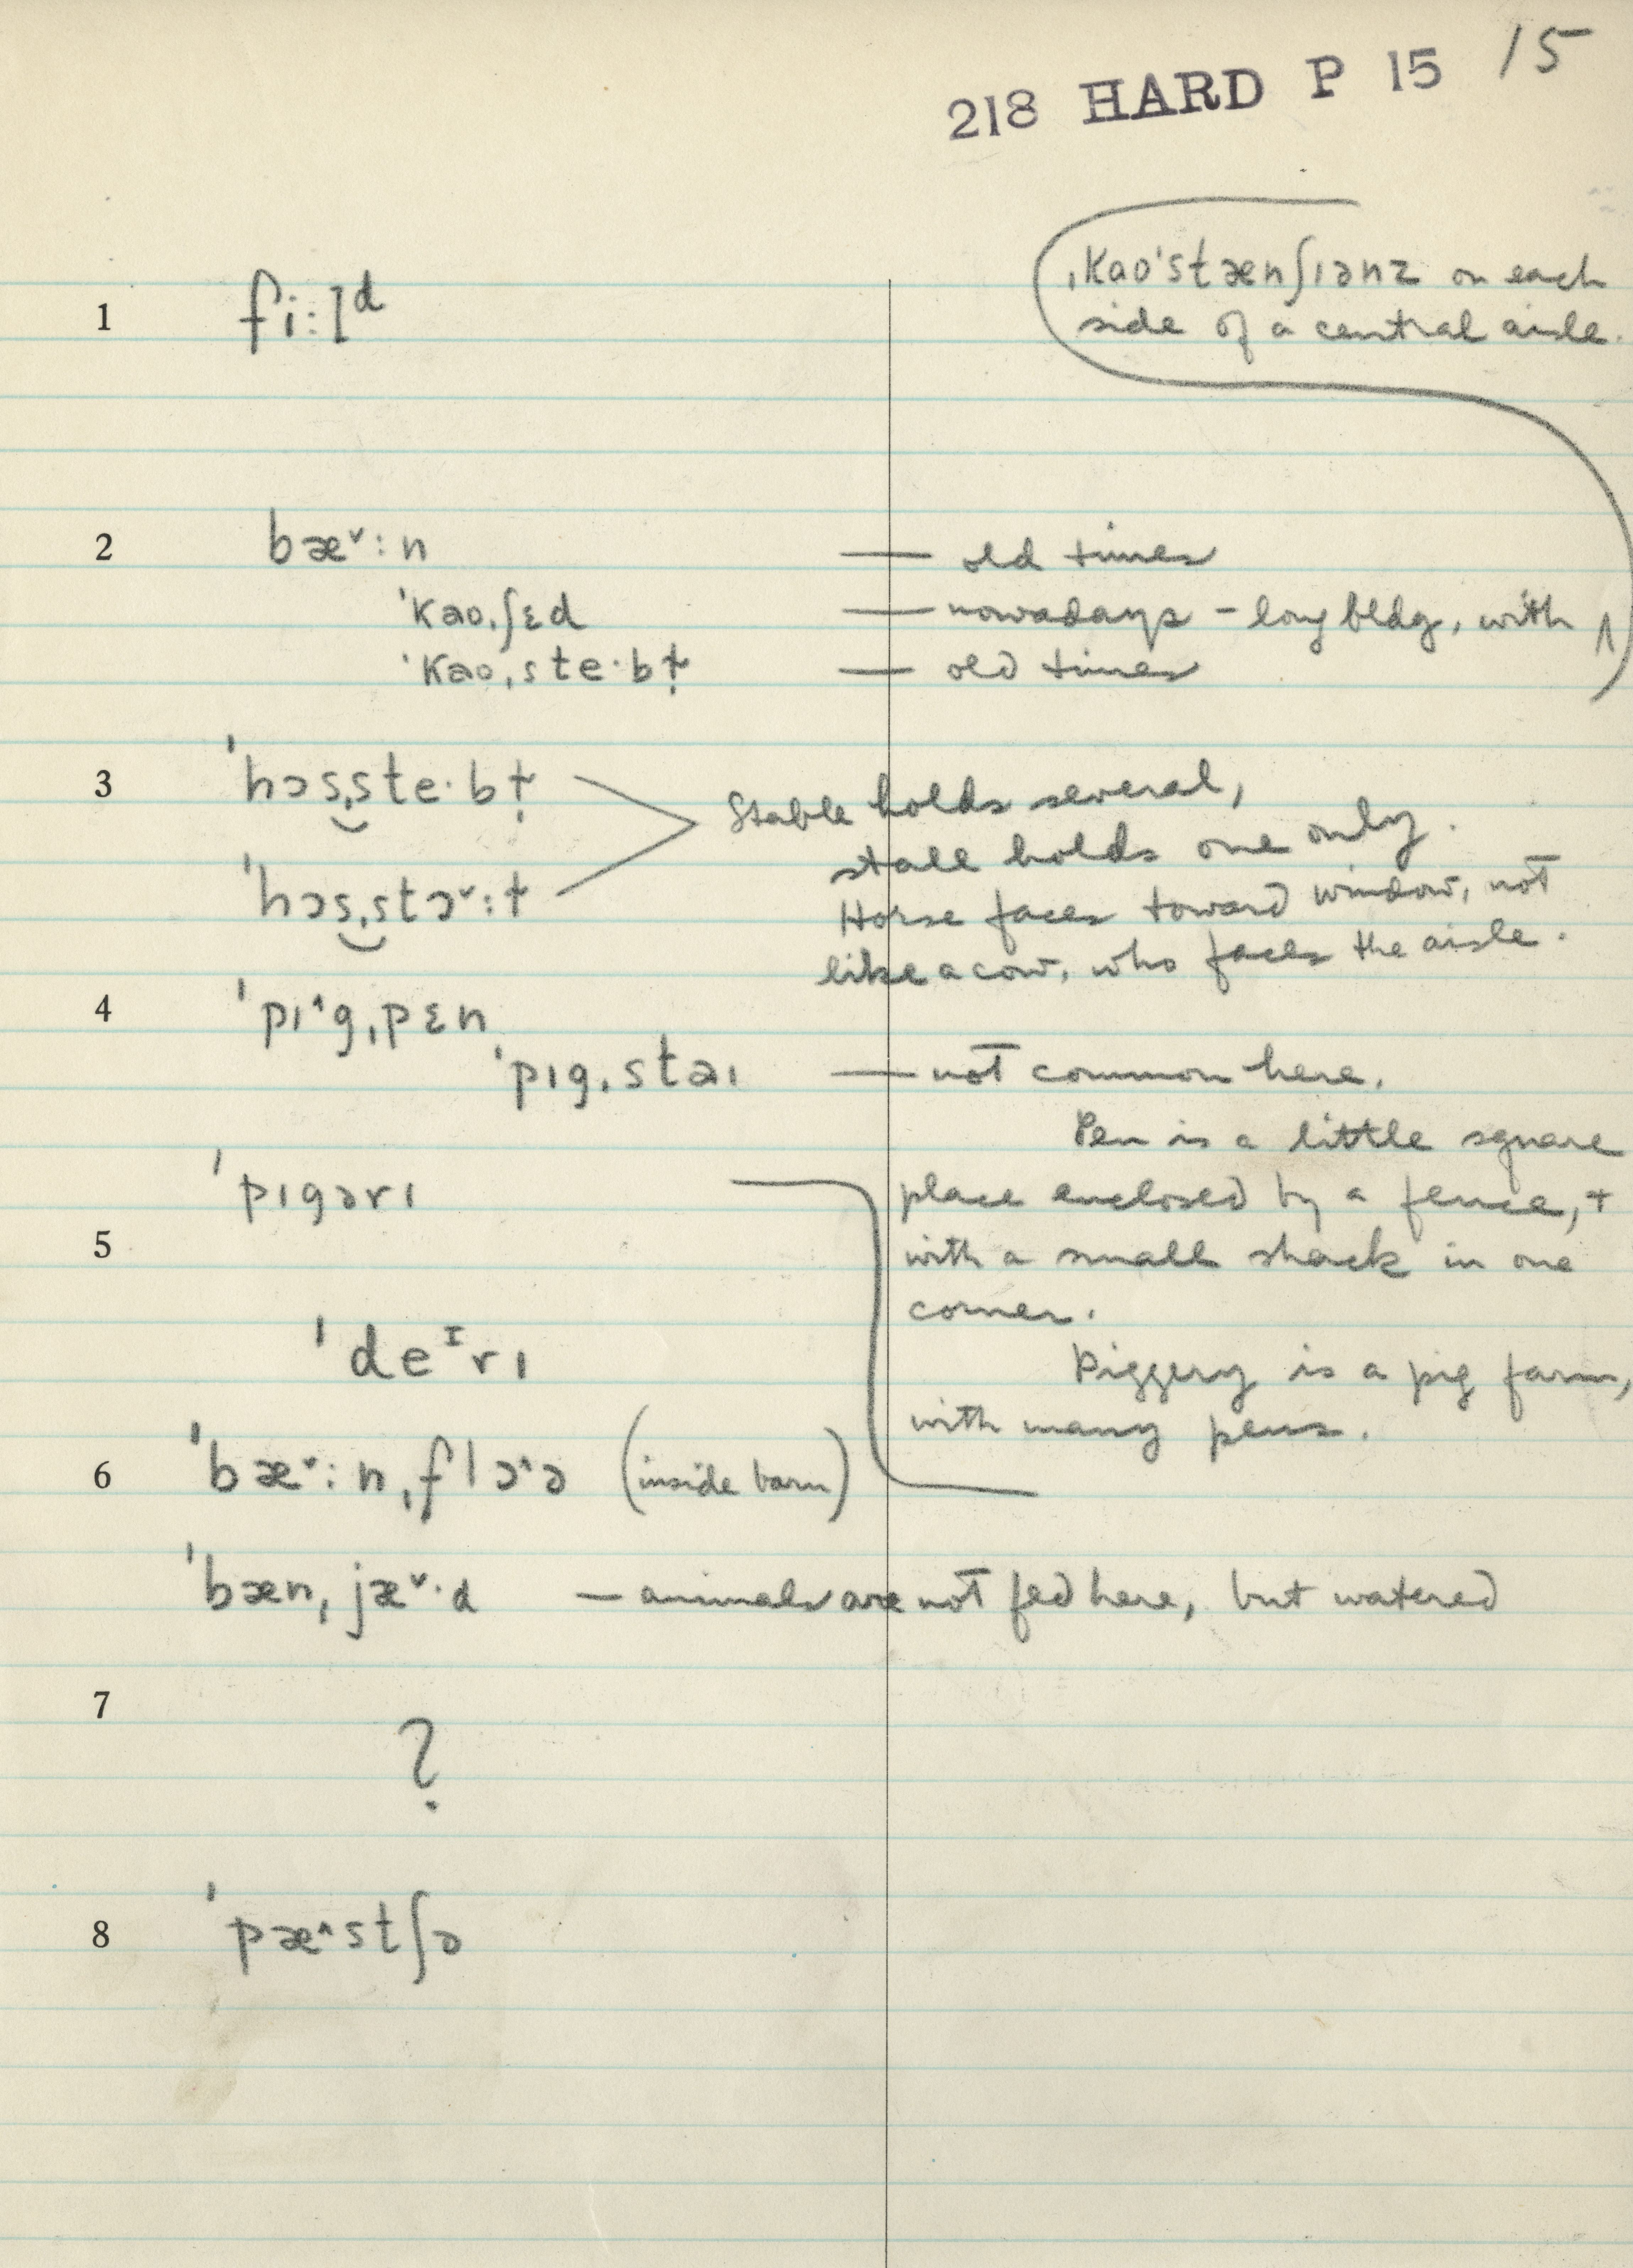 218 HARD P 15 15
ˌkao'stænʃıənz on each
side of a central aisle.
1 fi:lᵈ
2 bæ˅:n — old times
'kao,ʃɛd — nowadays - long bldg, with ∧
'kao,ste·bɫ̩ — old times
3 'hɔs,ste·bɫ̩ Stable holds several,
stall holds one only.
'hɔs,stɔ˅:ɫ Horse faces toward window, not
like a cow, who faces the aisle.
4 'pı^g,pɛn
'pıg,staı — not common here.
Pen is a little square
'pıgərı place enclosed by a fence, +
5 with a small shack in one
corner.
'deᴵrı Piggery is a pig farm,
with many pens.
6 'bæ˅:n,flɔ^ə (inside barn)
'bæn,jæ˅·d — animals are not fed here, but watered
7 ?
8 'pæ^stʃə